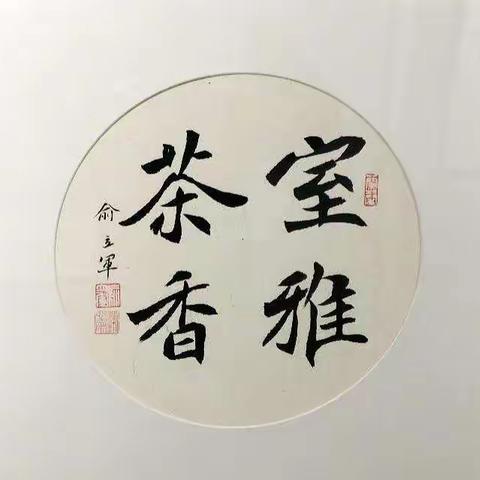 室雅
茶香
俞立軍